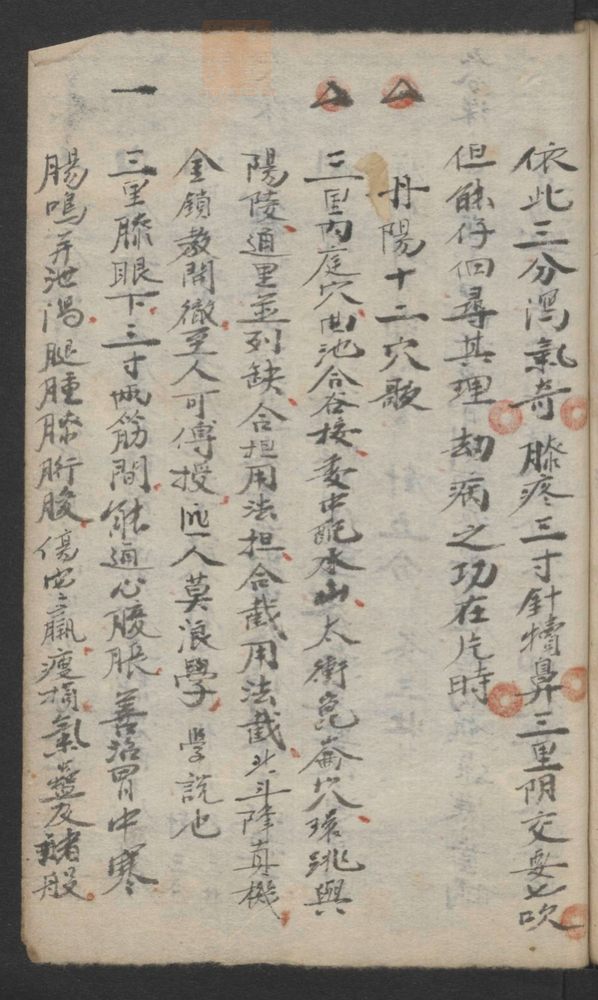 依此三分瀉氣奇 膝疼三寸針犢鼻 三里阴交要七吹
但能仔佪尋其理 劫病之功在片時
丹陽十二穴歌
三里內庭穴 曲池合谷接 委中配承山 太衝崑崙穴 環跳與
陽陵 通里並列缺 合担用法担 合截用法截 北斗降真機
金鎖教開徹 至人可傳授 匹人莫浪學 學說也
三里膝眼下 三寸両筋間 能通心腹脹 善治胃中寒
腸鳴并池瀉 腿腫膝胻酸 傷 羸瘦 氣蠱及諸般